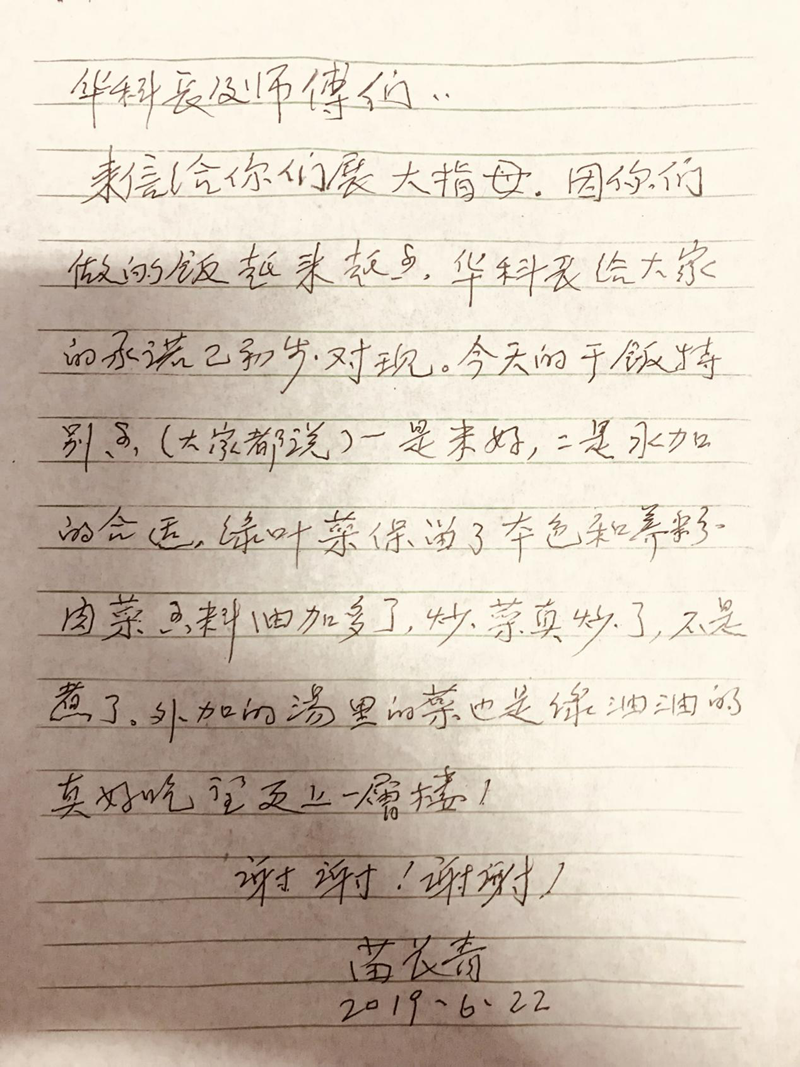 华科长及师傅们：
来信给你们展大指母. 因你们
做的饭越来越香, 华科长给大家
的承诺已初步对现。今天的干饭特
别香, (大家都说) 一是米好, 二是水加
的合适, 绿叶菜保留了本色和养粉
肉菜香料油加多了, 炒菜真炒了, 不是
煮了。外加的汤里的菜也是绿油油的
真好吃 更上一層楼!
谢谢! 谢谢!
苗长青
2019-6-22